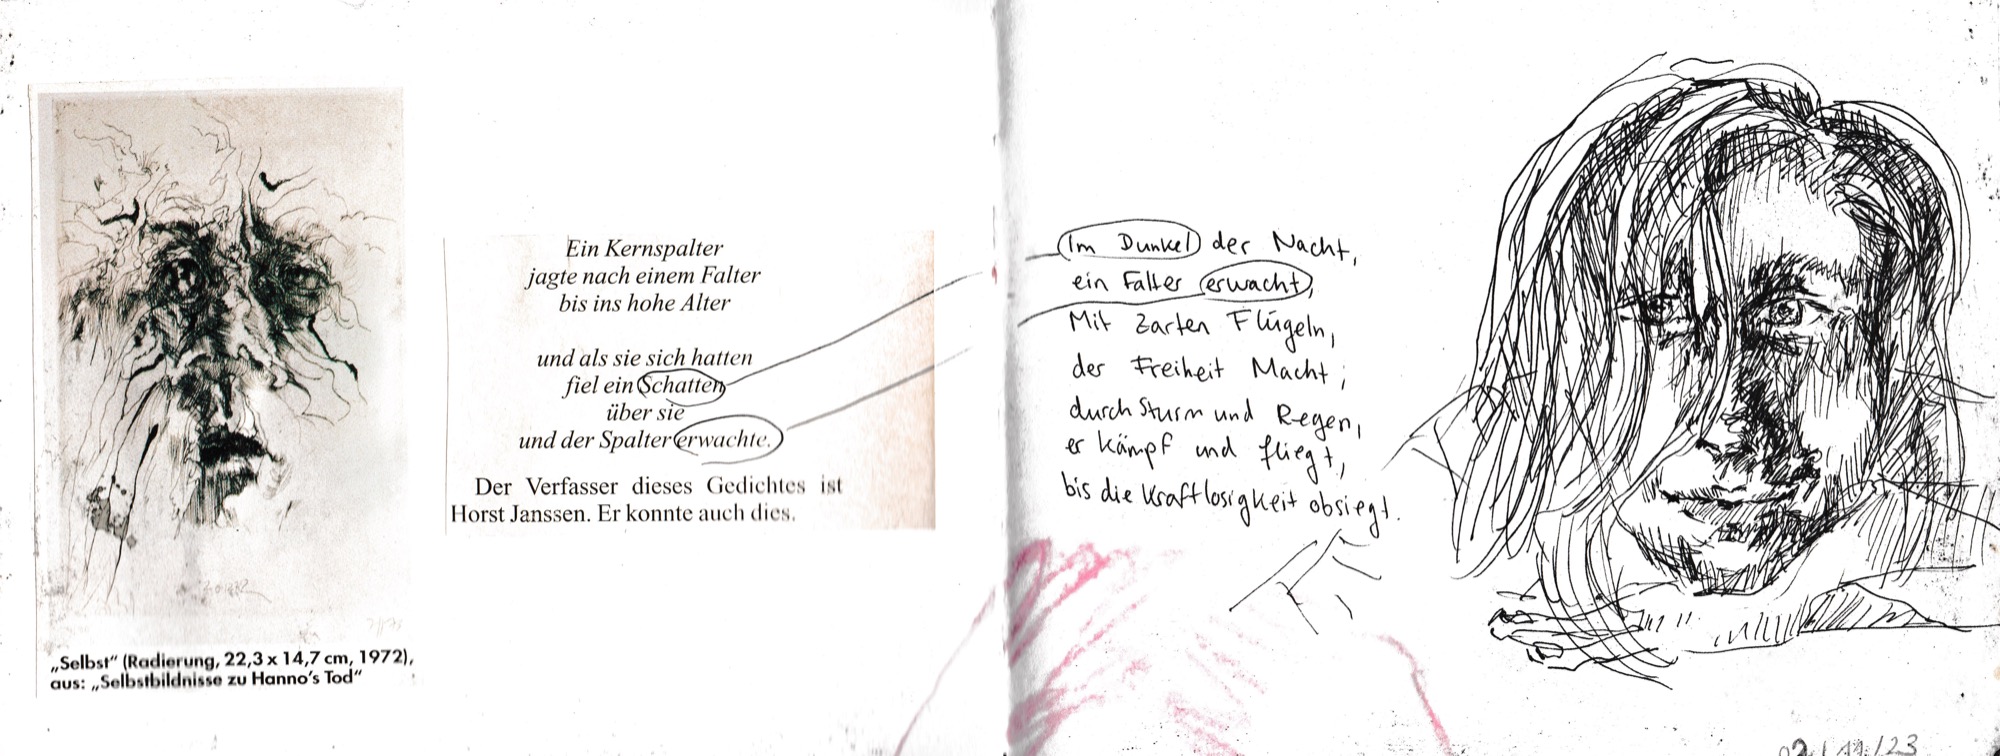 „Selbst“ (Radierung, 22,3 x 14,7 cm, 1972),
aus: „Selbstbildnisse zu Hanno's Tod“
Ein Kernspalter
jagte nach einem Falter
bis ins hohe Alter
und als sie sich hatten
fiel ein Schatten
über sie
und der Spalter erwachte.
Der Verfasser dieses Gedichtes ist
Horst Janssen. Er konnte auch dies.
Im Dunkel der Nacht,
ein Falter erwacht,
Mit zarten Flügeln,
der Freiheit Macht;
durch Sturm und Regen,
er kämpf und fliegt,
bis die Kraftlosigkeit obsiegt.